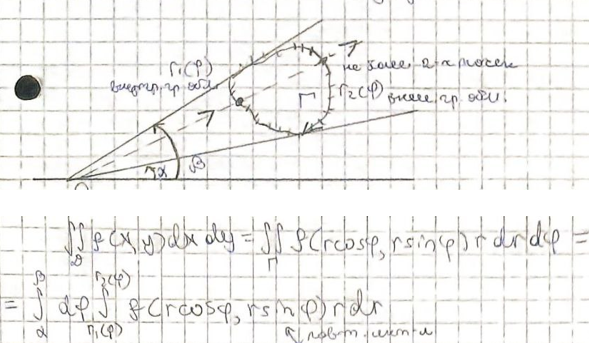 r₁(φ)
внутр. гр. обл.
не более 2-х точек
r₂(φ) внеш. гр. обл.
Г
α β
∬_D f(x,y)dxdy = ∬_Г f(rcosφ, rsinφ) r dr dφ =
= ∫_α^β dφ ∫_{r₁(φ)}^{r₂(φ)} f(rcosφ, rsinφ) r dr
повт. инт-л